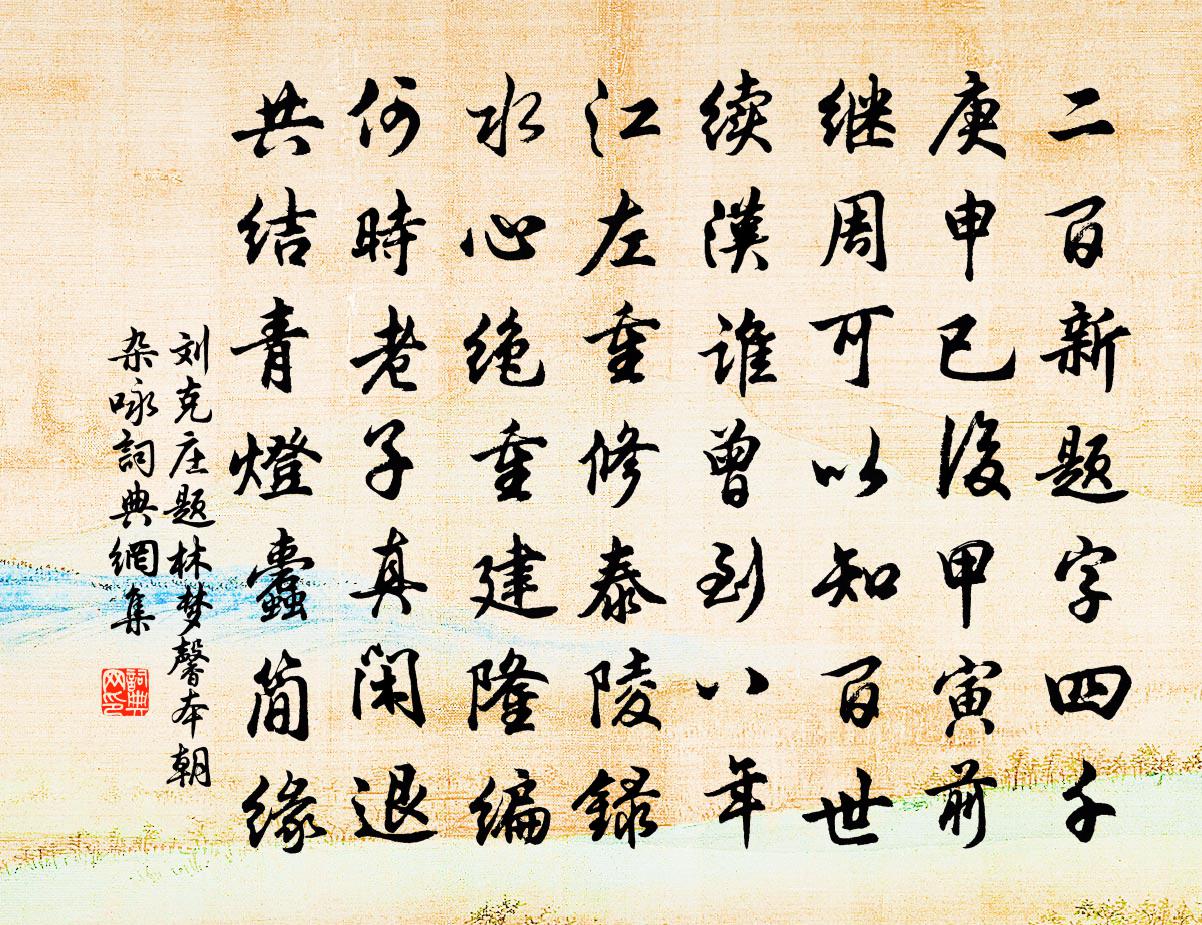 二百新题字四千
庚申已後甲寅前
继周可以知百世
续漢谁曾到八年
江左重修泰陵録
水心绝重建隆编
何時老子真闲退
共结青燈蠹简缘
刘克庄题林梦馨本朝
杂咏詞典網集
詞典网印